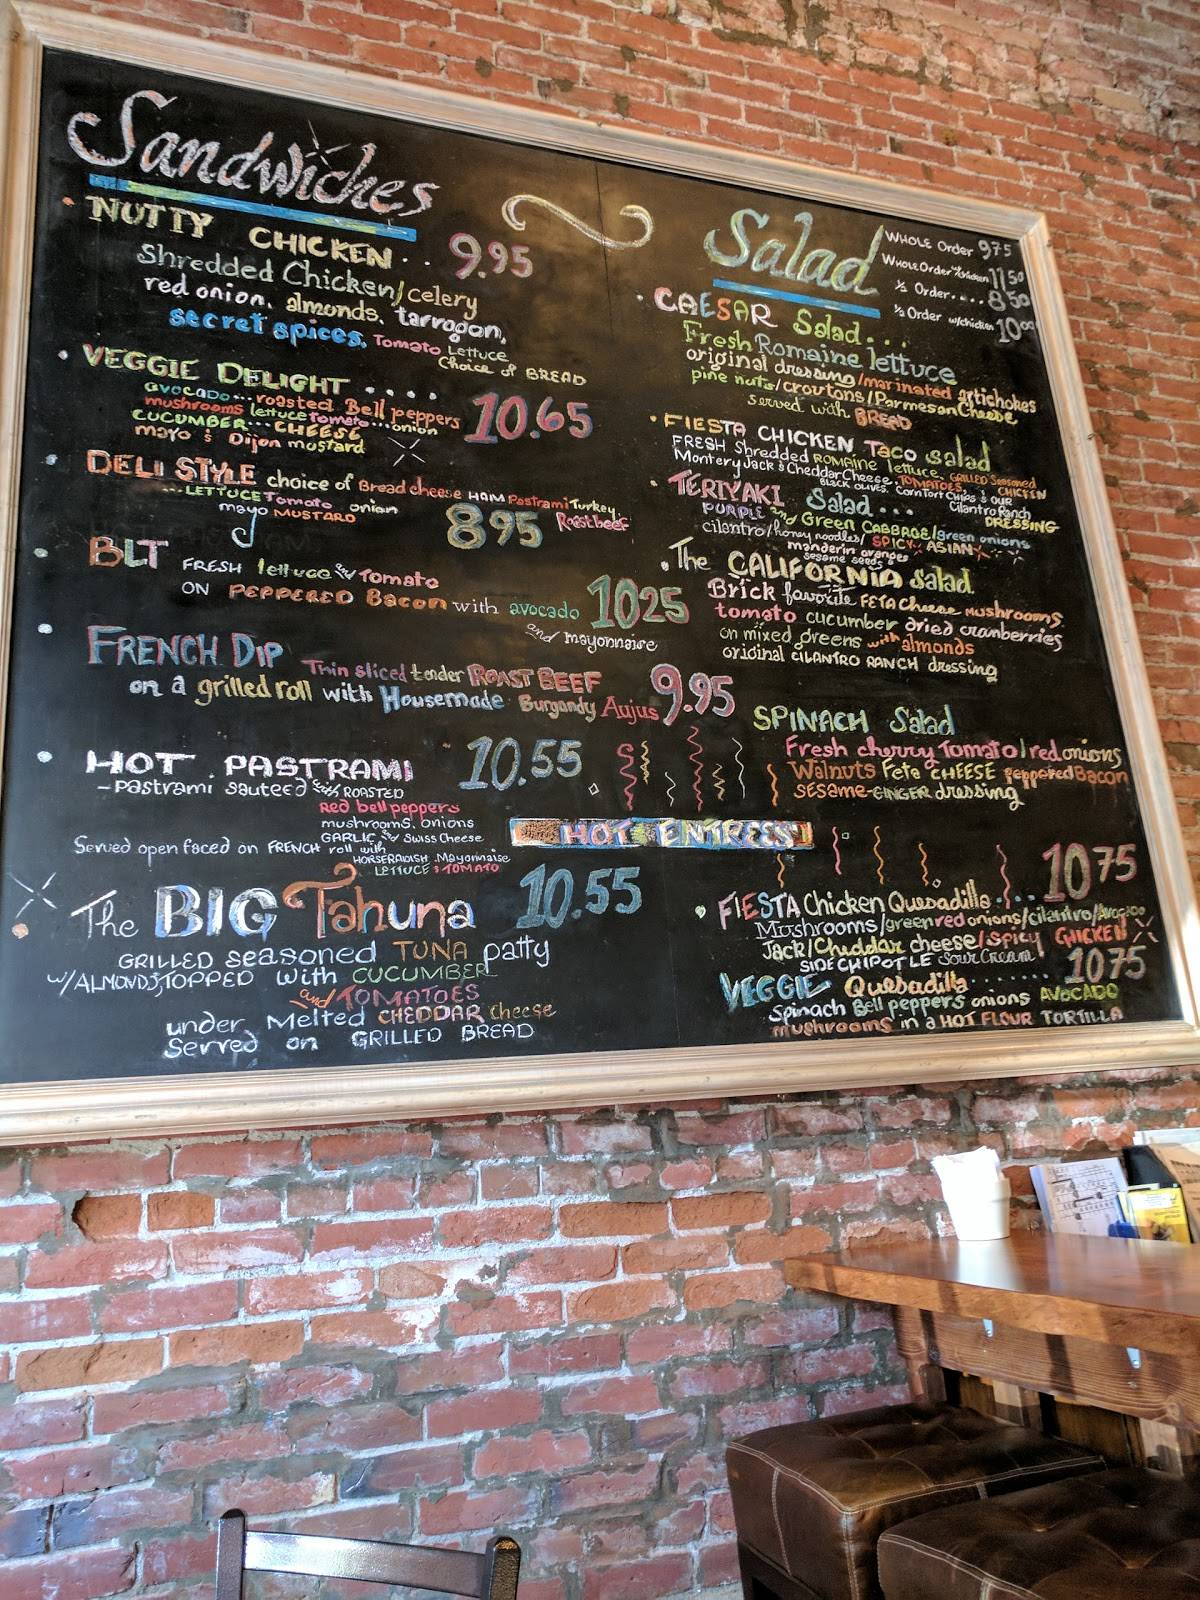 Sandwiches
• NUTTY CHICKEN . . 9.95
Shredded Chicken/celery
red onion, almonds, tarragon,
secret spices. Tomato Lettuce
Choice of BREAD
• VEGGIE DELIGHT . . . . 10.65
avocado... roasted Bell peppers
mushrooms lettuce Tomato... onion
CUCUMBER... CHEESE
mayo & Dijon mustard
DELI STYLE choice of Bread cheese HAM Pastrami Turkey
... LETTUCE Tomato onion 8.95 Roast beef
mayo MUSTARD
• BLT FRESH lettuce and Tomato
ON PEPPERED Bacon with avocado 10.25
and mayonnaise
• FRENCH DIP Thin sliced tender ROAST BEEF
on a grilled roll with Housemade Burgandy Aujus 9.95
• HOT PASTRAMI 10.55
- pastrami sauteed with ROASTED
Red bell peppers
mushrooms, onions
GARLIC and Swiss Cheese
Served open faced on FRENCH roll with
HORSERADISH Mayonnaise
LETTUCE & TOMATO
• The BIG Tahuna 10.55
GRILLED seasoned TUNA patty
w/ALMONDS, TOPPED with CUCUMBER
and TOMATOES
under Melted CHEDDAR cheese
Served on GRILLED BREAD
Salad
WHOLE Order 9.75
Whole Order w/chicken 11.50
½ Order.... 8.50
½ Order w/chicken 10.00
• CAESAR Salad...
Fresh Romaine lettuce
original dressing/marinated artichokes
pine nuts/croutons/Parmesan Cheese
served with BREAD
• FIESTA CHICKEN Taco salad
FRESH Shredded ROMAINE lettuce, GRILLED Seasoned
Montery Jack & Cheddar Cheese, TOMATOES, & CHICKEN
BLACK OLIVES, Corn Tort Chips & OUR
Cilantro Ranch
DRESSING
• TERIYAKI Salad...
PURPLE and Green CABBAGE/green onions
cilantro/honey noodles/ SPICY ASIAN
manderin oranges
sesame seeds
• The CALIFORNIA salad
Brick favorite FETA Cheese MUSHROOMS
tomato cucumber dried cranberries
on mixed greens with almonds
original CILANTRO RANCH dressing
SPINACH Salad
Fresh cherry Tomato/red onions
Walnuts Fete CHEESE peppered Bacon
SESAME-GINGER dressing
HOT ENTREES!
• FIESTA Chicken Quesadilla... 10.75
Mushrooms/green red onions/cilantro/Avocado
Jack/Cheddar cheese/Spicy CHICKEN
SIDE CHIPOTLE Sour Cream
VEGGIE Quesadilla....... 10.75
Spinach Bell peppers onions AVOCADO
mushrooms in a HOT FLOUR TORTILLA